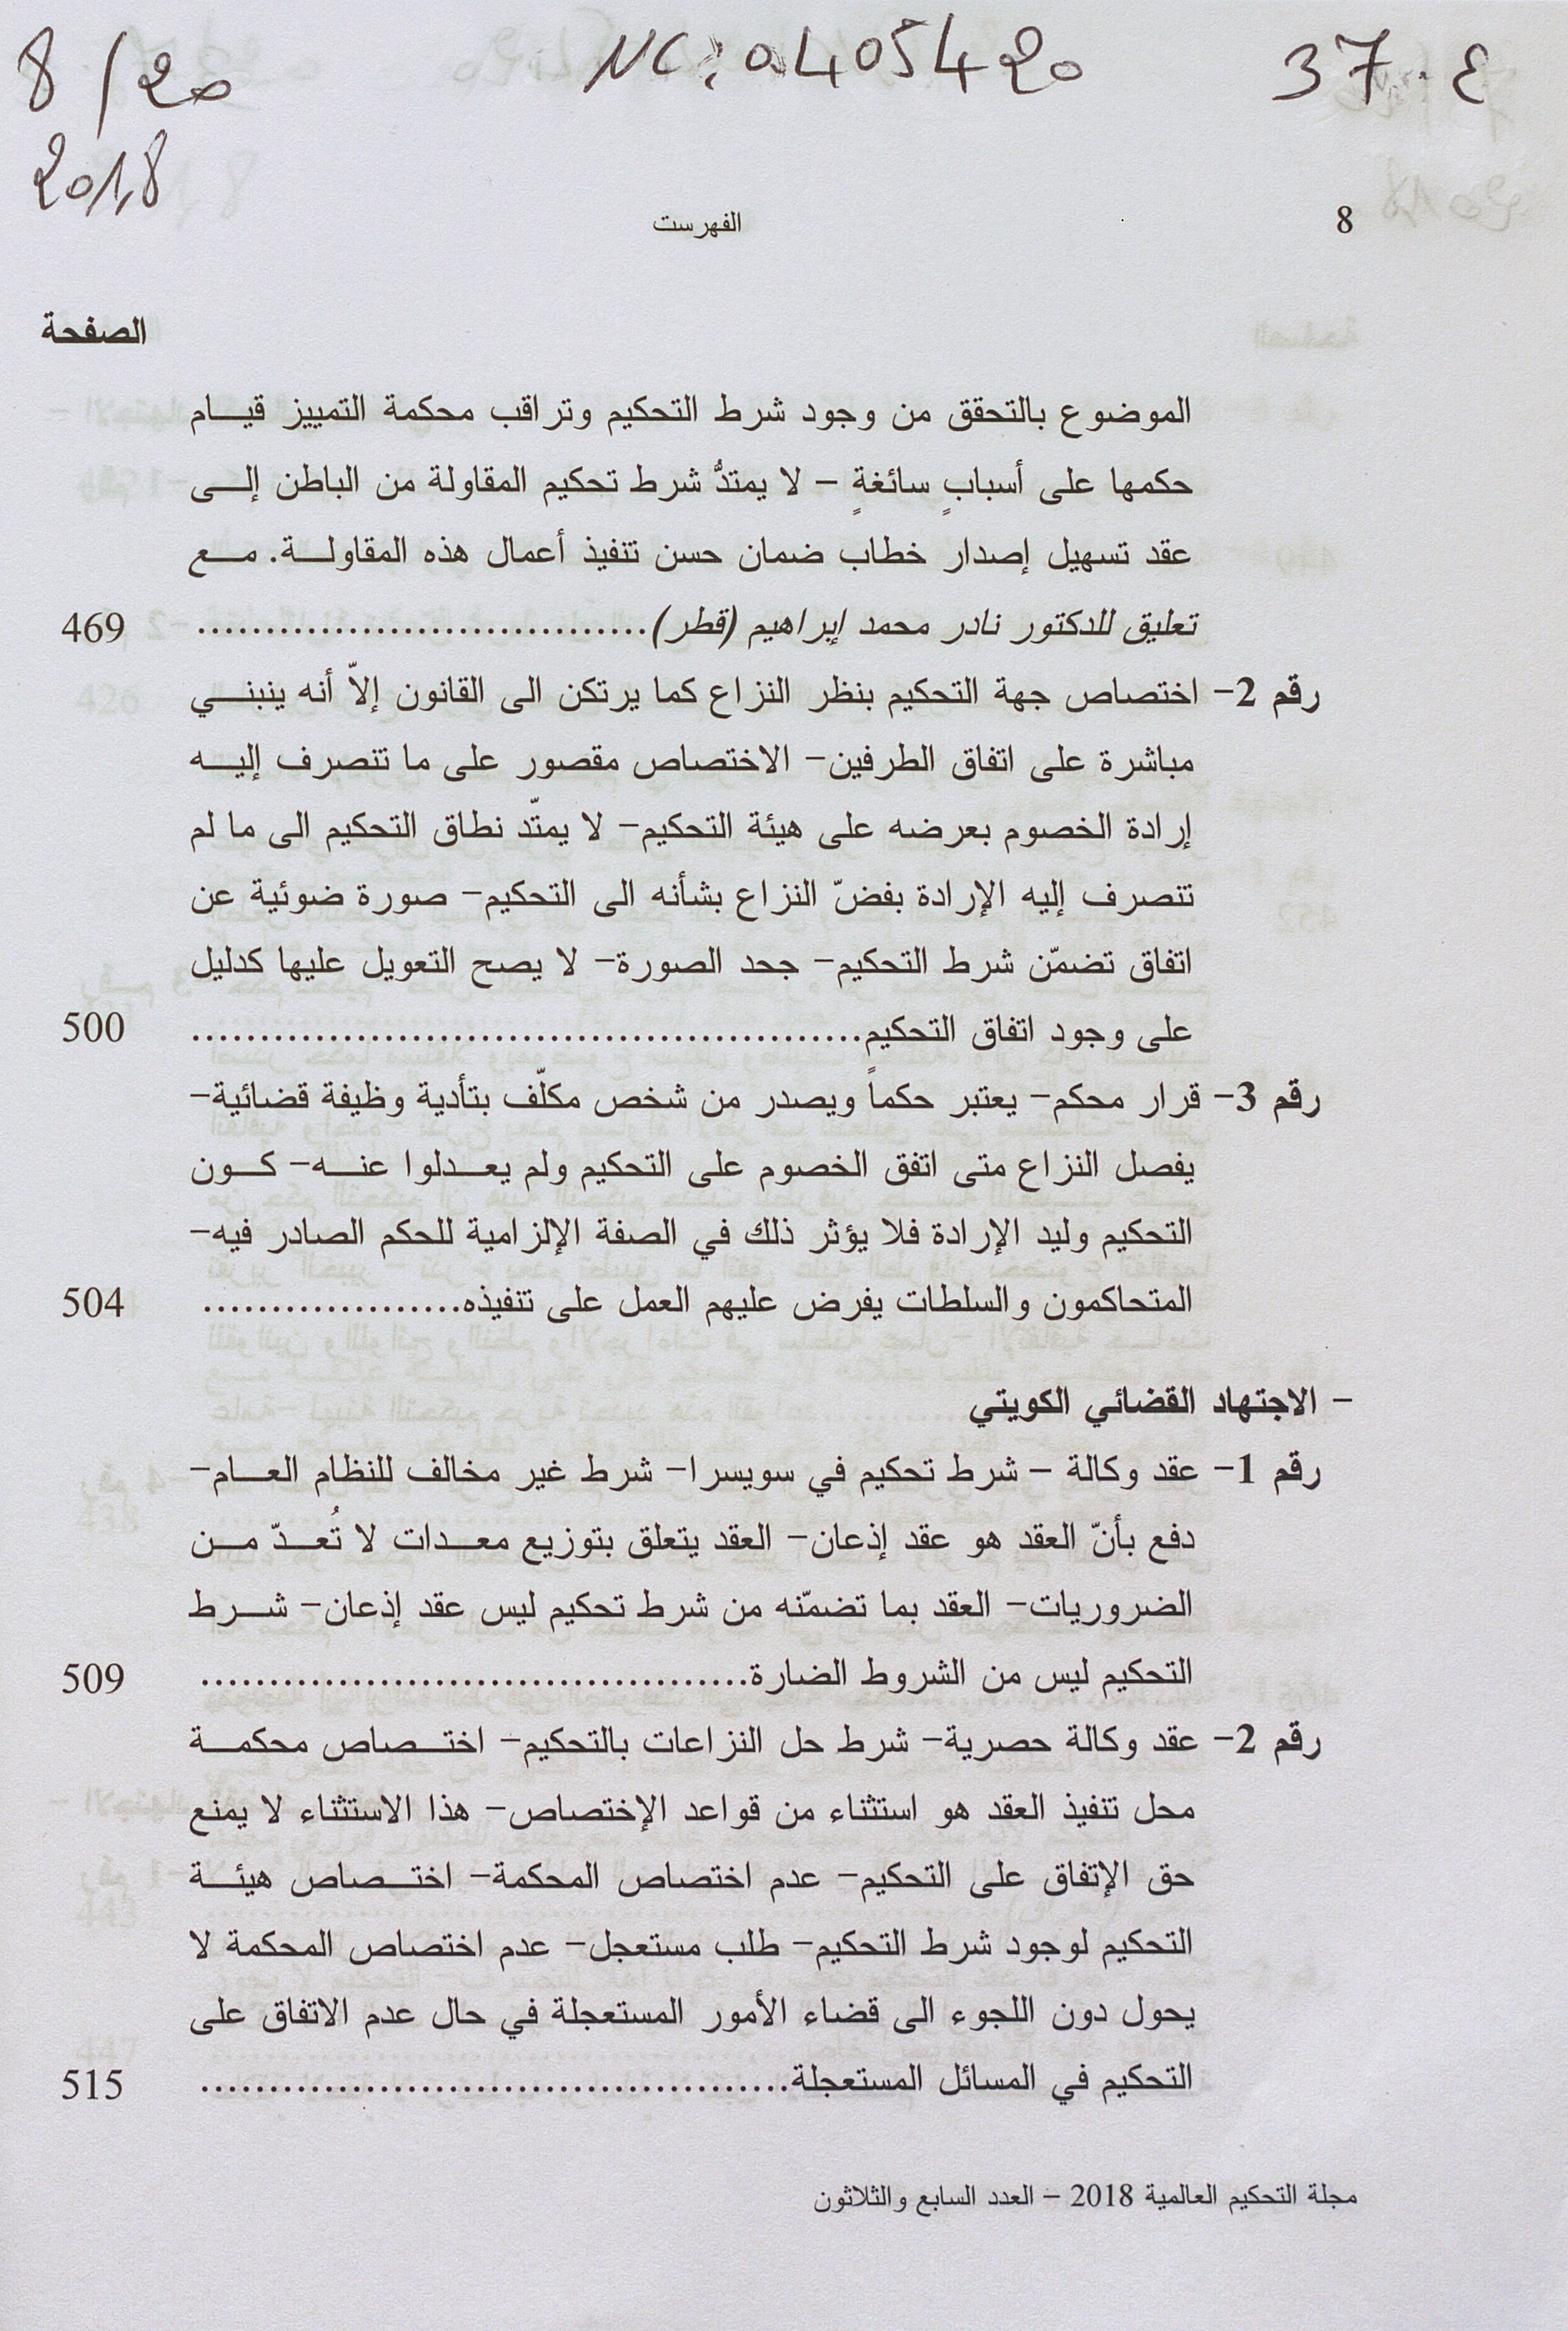 8/20
2018
NC: 0405420
37. ع
8
الفهرست
الصفحة
الموضوع بالتحقق من وجود شرط التحكيم وتراقب محكمة التمييز قيـــام
حكمها على أسبابٍ سائغةٍ – لا يمتدُّ شرط تحكيم المقاولة من الباطن إلـــى
عقد تسهيل إصدار خطاب ضمان حسن تنفيذ أعمال هذه المقاولـــة. مـــع
تعليق للدكتور نادر محمد إبراهيم (قطر)................................. 469
رقم 2- اختصاص جهة التحكيم بنظر النزاع كما يرتكن الى القانون إلاّ أنه ينبنـــي
مباشرة على اتفاق الطرفين- الاختصاص مقصور على ما تتصرف إليـــه
إرادة الخصوم بعرضه على هيئة التحكيم- لا يمتّد نطاق التحكيم الى ما لم
تتصرف إليه الإرادة بفضّ النزاع بشأنه الى التحكيم- صورة ضوئية عن
اتفاق تضمّن شرط التحكيم- جحد الصورة- لا يصح التعويل عليها كدليل
على وجود اتفاق التحكيم................................................. 500
رقم 3- قرار محكم- يعتبر حكماً ويصدر من شخص مكلّف بتأدية وظيفة قضائية-
يفصل النزاع متى اتفق الخصوم على التحكيم ولم يعـــدلوا عنـــه- كـــون
التحكيم وليد الإرادة فلا يؤثر ذلك في الصفة الإلزامية للحكم الصادر فيه-
المتحاكمون والسلطات يفرض عليهم العمل على تنفيذه................... 504
– الاجتهاد القضائي الكويتي
رقم 1- عقد وكالة – شرط تحكيم في سويسرا- شرط غير مخالف للنظام العـــام-
دفع بأنّ العقد هو عقد إذعان- العقد يتعلق بتوزيع معـــدات لا تُعـــدّ مـــن
الضروريات- العقد بما تضمّنه من شرط تحكيم ليس عقد إذعان- شـــرط
التحكيم ليس من الشروط الضارة........................................ 509
رقم 2- عقد وكالة حصرية- شرط حل النزاعات بالتحكيم- اختـــصاص محكمـــة
محل تنفيذ العقد هو استثناء من قواعد الإختصاص- هذا الاستثناء لا يمنع
حق الإتفاق على التحكيم- عدم اختصاص المحكمة- اختـــصاص هيئـــة
التحكيم لوجود شرط التحكيم- طلب مستعجل- عدم اختصاص المحكمة لا
يحول دون اللجوء الى قضاء الأمور المستعجلة في حال عدم الاتفاق على
التحكيم في المسائل المستعجلة........................................... 515
مجلة التحكيم العالمية 2018 – العدد السابع والثلاثون